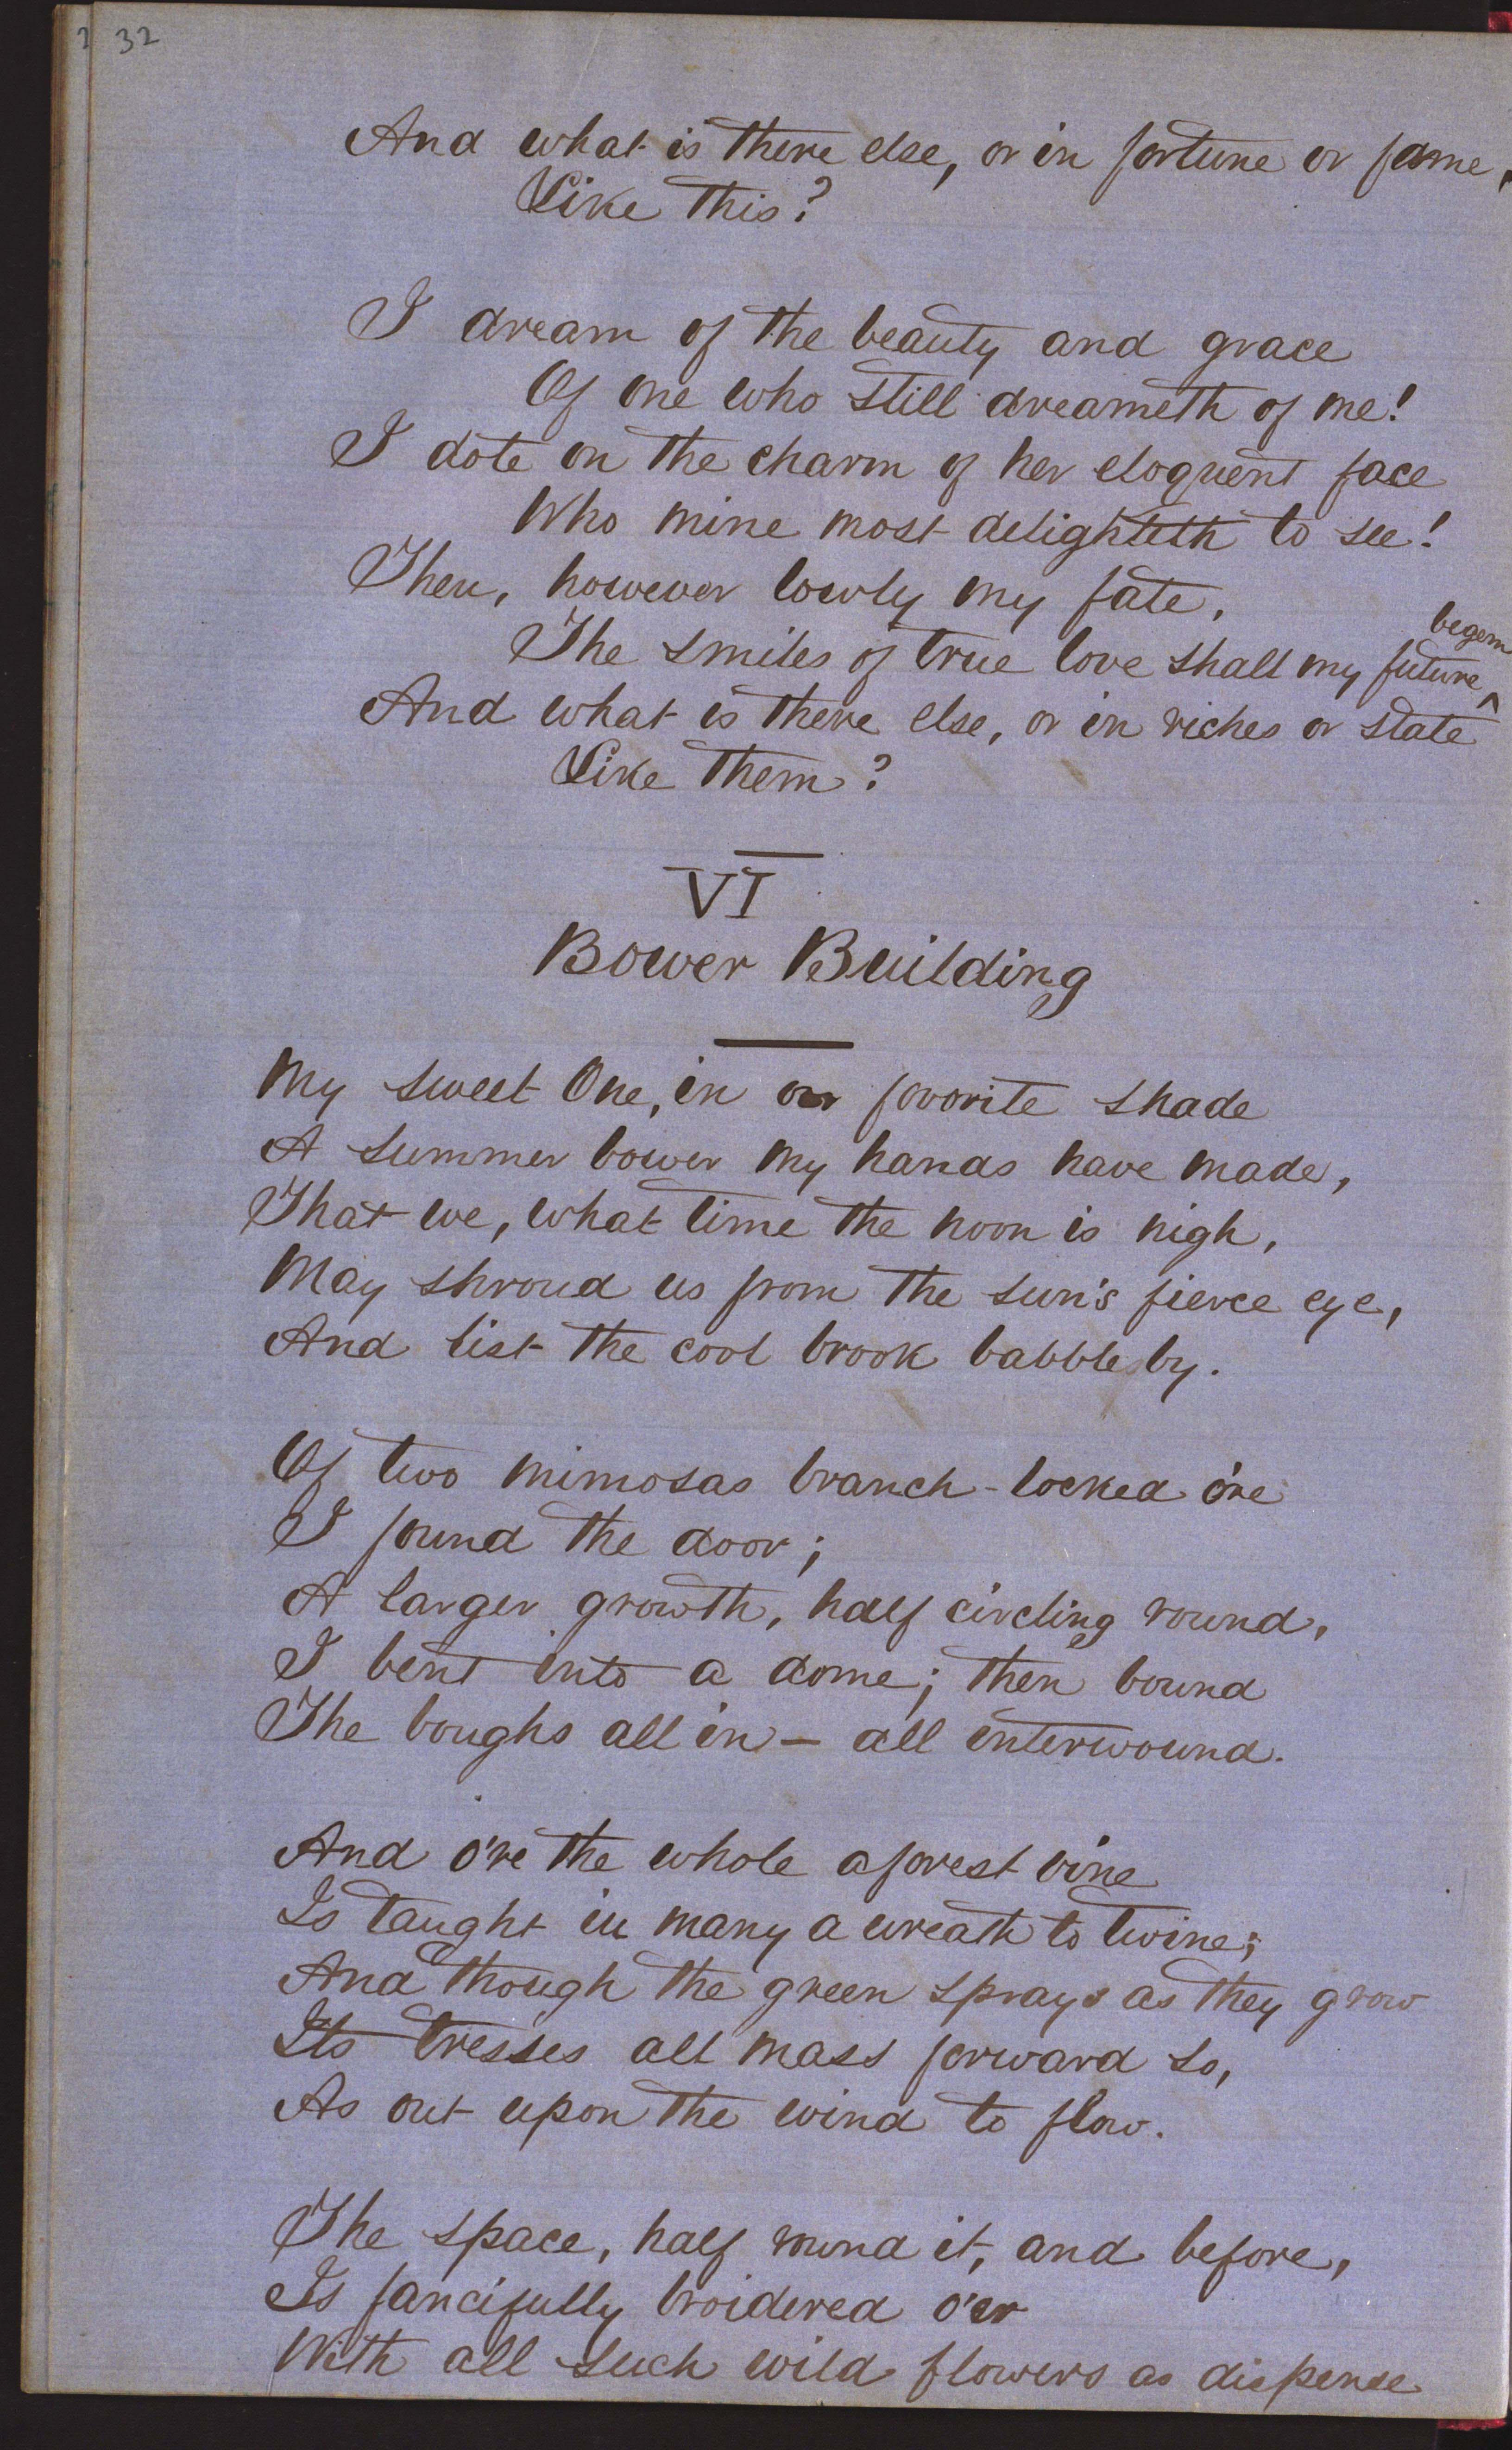 32
And what is there else, or in fortune or fame,
Like this?
I dream of the beauty and grace
Of one who still dreameth of me!
I dote on the charm of her eloquent face
Who mine most delighteth to see!
Then, however lowly my fate,
The smiles of true love shall my future ^ begem
And what is there else, or in riches or state
Like them?
VI
Bower Building
My sweet One, in our favorite shade
A summer bower my hands have made,
That we, what time the noon is nigh,
May shroud us from the sun's fierce eye,
And list the cool brook babble by.
Of two mimosas branch-locked o're
I found the door;
A larger growth, half circling round,
I bent into a dome; then bound
The boughs all in – all interwound.
And o're the whole a forest vine
Is taught in many a wreath to twine;
And though the green sprays as they grow
Its tresses all mass forward so,
As out upon the wind to flow.
The space, half round it, and before,
Is fancifully broidered o'er
With all such wild flowers as dispense